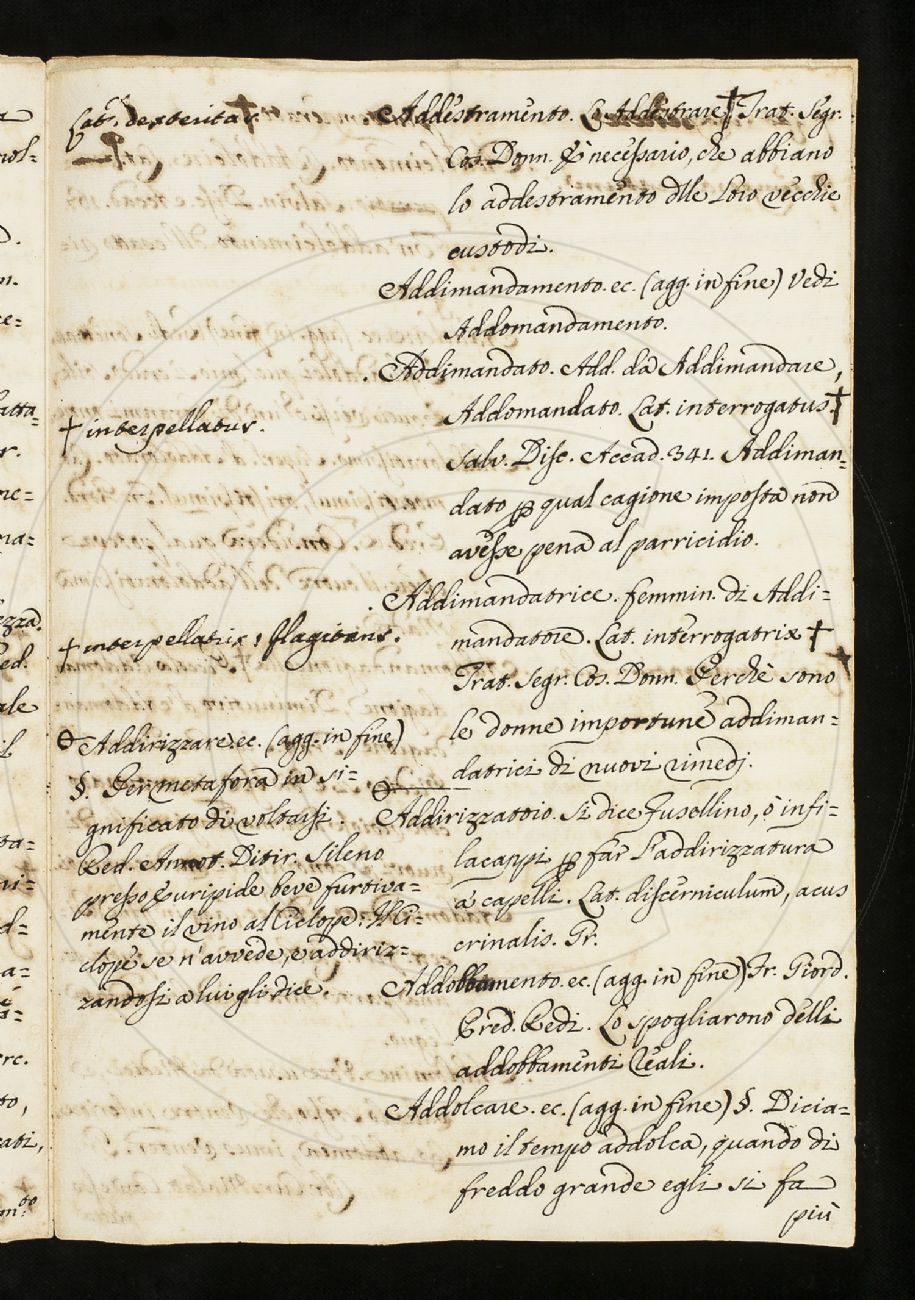 Lat. dexteritas.
Addestramento. Lo Addestrare † Trat. Segr.
Cos. Donn. È necessario, che abbiano
lo addestramento dlle Loro vecchie
custodi.
Addimandamento. ec. (agg. in fine) Vedi
Addomandamento.
. Addimandato. Add. da Addimandare,
Addomandato. Lat. interrogatus. †
† interpellatus.
Salv. Disc. Accad. 341. Addiman=
dato p qual cagione imposta non
avesse pena al parricidio.
. Addimandatrice. femmin. di Addi=
mandatore. Lat. interrogatrix †
† interpellatrix, flagitans.
Trat. Segr. Cos. Donn. Perchè sono
le donne importune addiman=
datrici di nuovi rimedj.
Ꝋ Addirizzare. ec. (agg. in fine)
§. Per metafora in si=
gnificato di voltarsi.
Red. Annot. Ditir. Sileno
presso Euripide beve furtiva=
mente il vino al Ciclope: Il Ci=
clope se n'avvede, e addiriz=
zandosi a lui gli dice.
Ꝋ
Addirizzatoio. Si dice Fusellino, ò infi=
lacappi p far l'addirizzatura
a' capelli. Lat. discerniculum, acus
crinalis. Gr.
Addobbamento. ec. (agg. in fine) Fr. Giord.
Pred. Redi. Lo spogliarono delli
addobbamenti Reali.
Addolcare. ec. (agg. in fine) §. Dicia=
mo il tempo addolca, quando di
freddo grande egli si fa
più